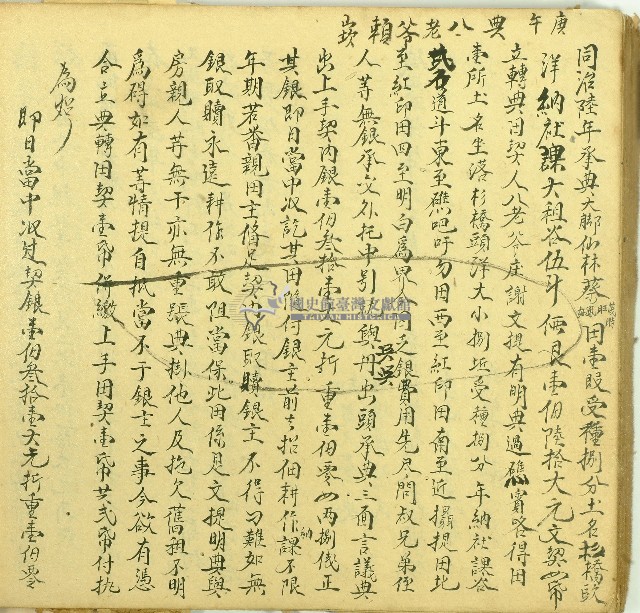 庚午 典八老爷賴崁
同治陸年承典大脚仙林葵田壹段受種捌分土名杉橋
洋納社課大租谷伍斗佛見壹佰陸拾大元文契
立轉典田契人八老爷庄謝文提有明典過礁賓咯得田
壹所土名坐落杉橋頭洋大小捌坵受種捌分年納社課谷
弍石道斗東至礁吧吁勿田西至紅印田南至近攝提田北
至紅印田四至明白為界今因乏銀費用先尽問叔兄弟侄
人等無銀承交外托中引就與丹出頭承典三面言議典
出上手契內銀壹佰叁拾壹大元折重壹佰零 兩捌錢正
其銀即日當中收訖其田隨付銀主前去招佃耕作納課不限
年期若番親田主俻足契內銀取贖銀主不得刁難如無
銀取贖永遠耕作不敢阻當保此田係是文提明典與
房親人等無干亦無重張典掛他人及拖欠舊租不明
為碍如有等情提自抵當不干銀主之事今欲有憑
合立典轉田契壹帋併繳上手田契壹帋共弍帋付执
為炤
即日當中收过契銀壹佰叁拾壹大元折重壹佰零
國史館臺灣文獻館
TAIWAN HISTORICA